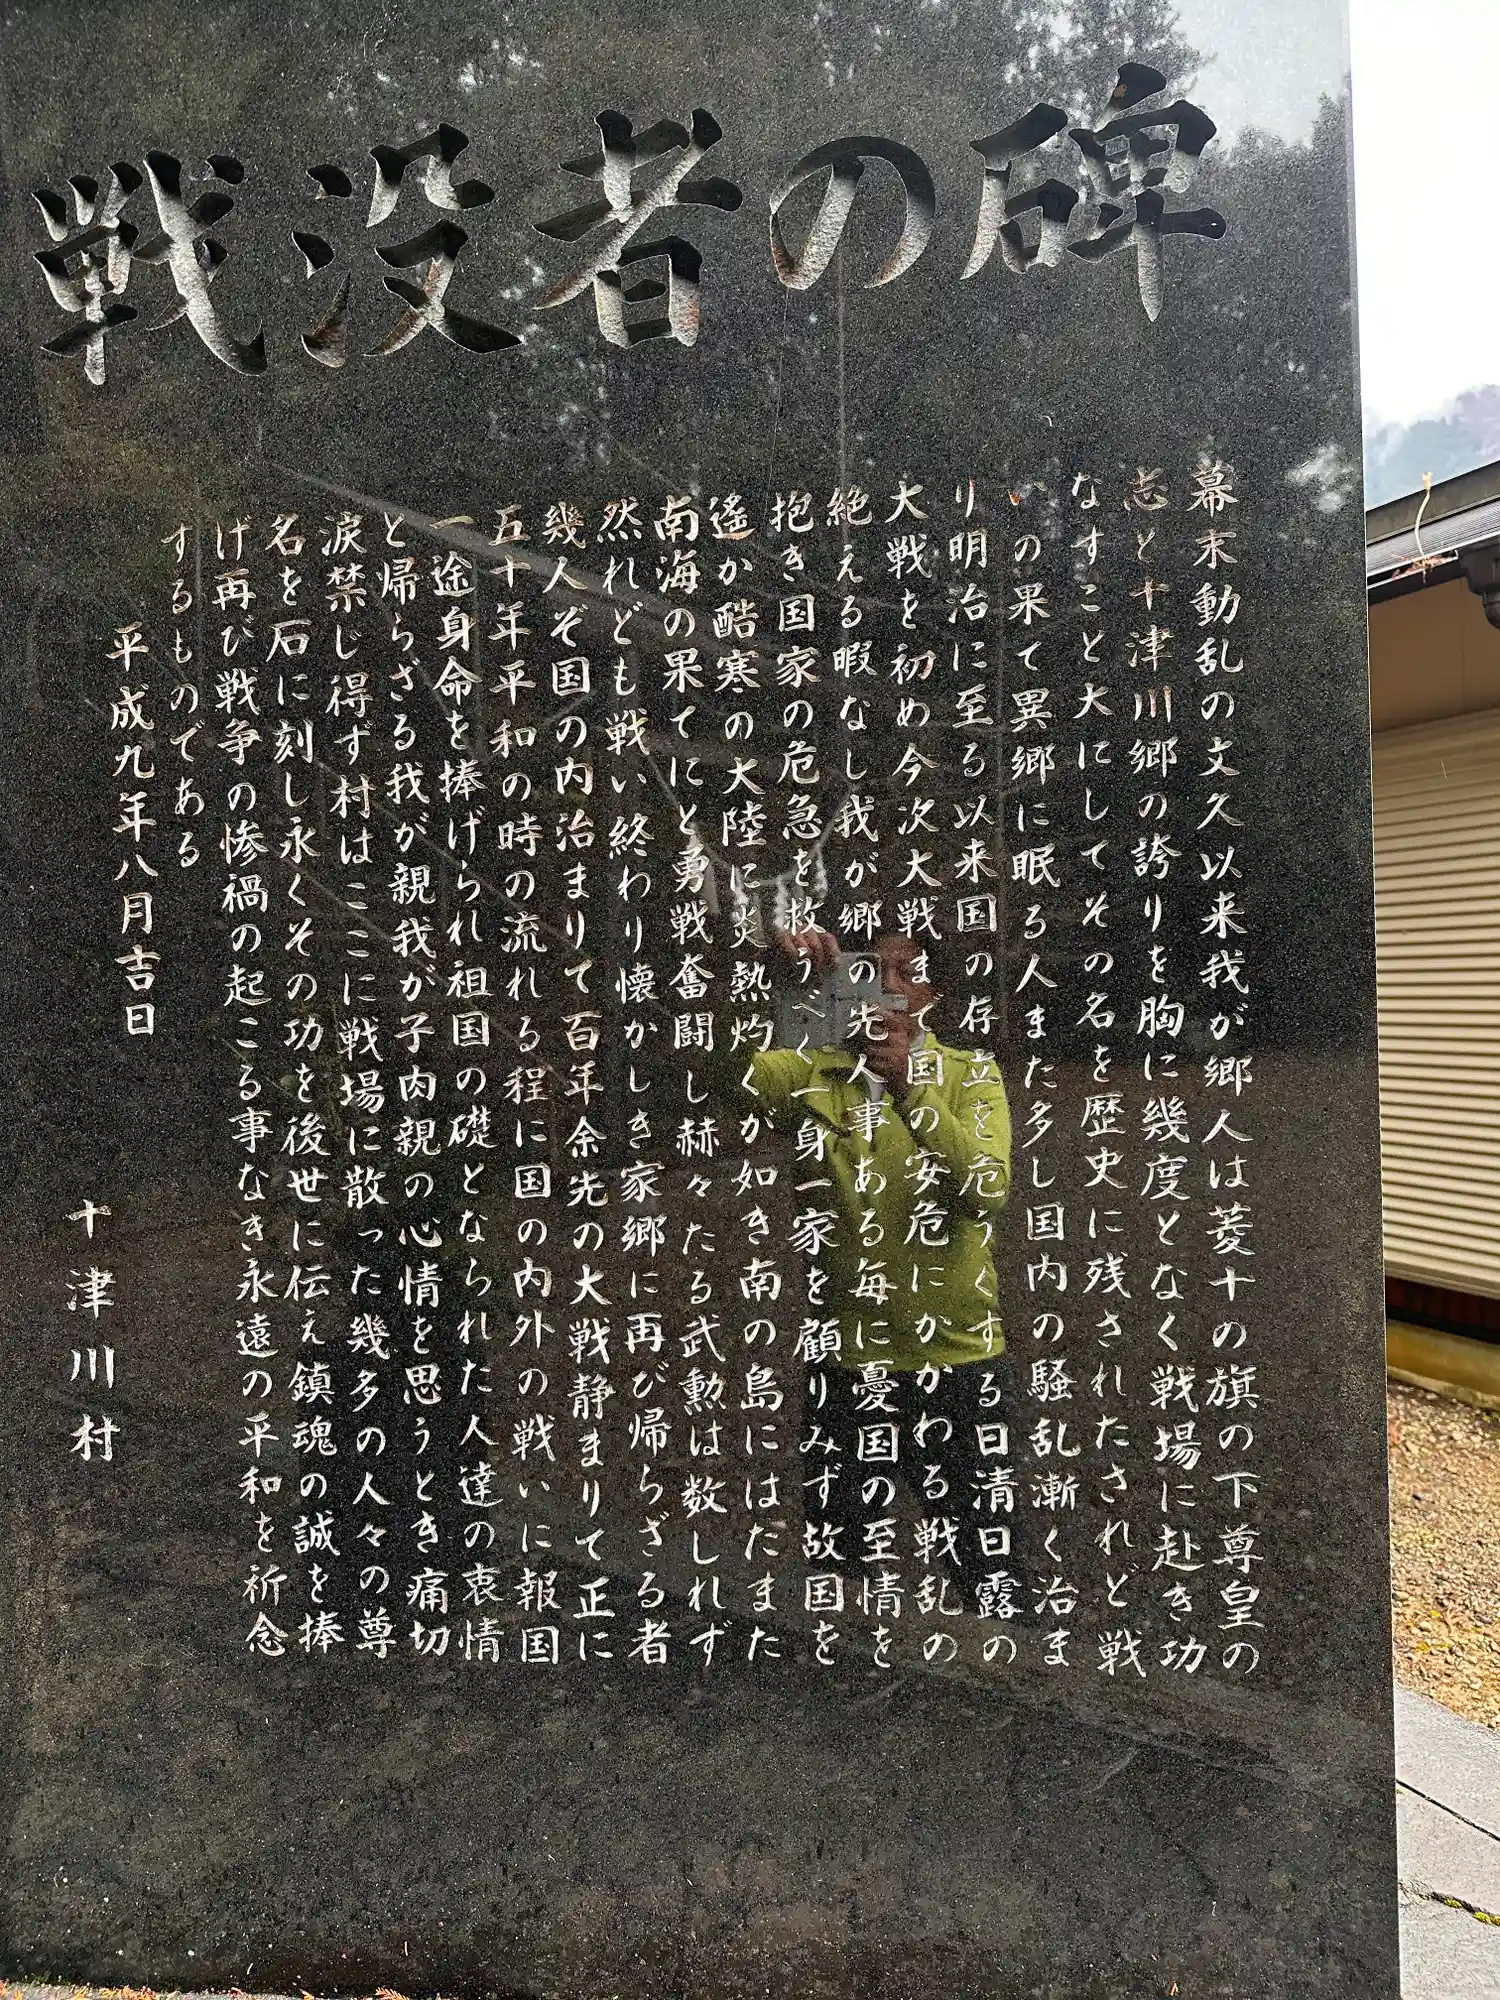 戦没者の碑
幕末動乱の文久以来我が郷人は菱十の旗の下尊皇の
志と十津川郷の誇りを胸に幾度となく戦場に赴き功
なすこと大にしてその名を歴史に残されたされど戦
いの果て異郷に眠る人また多し国内の騒乱漸く治ま
り明治に至る以来国の存立を危うくする日清日露の
大戦を初め今次大戦まで国の安危にかかわる戦乱の
絶える暇なし我が郷の先人事ある毎に憂国の至情を
抱き国家の危急を救うべく一身一家を顧りみず故国を
遙か酷寒の大陸に炎熱灼くが如き南の島にはたまた
南海の果てにと勇戦奮闘し赫々たる武勲は数しれず
然れども戦い終わり懐かしき家郷に再び帰らざる者
幾人ぞ国の内治まりて百年余先の大戦静まりて正に
五十年平和の時の流れる程に国の内外の戦いに報国
一途身命を捧げられ祖国の礎となられた人達の衷情
と帰らざる我が親我が子肉親の心情を思うとき痛切
涙禁じ得ず村はここに戦場に散った幾多の人々の尊
名を石に刻し永くその功を後世に伝え鎮魂の誠を捧
げ再び戦争の惨禍の起こる事なき永遠の平和を祈念
するものである
平成九年八月吉日
十津川村